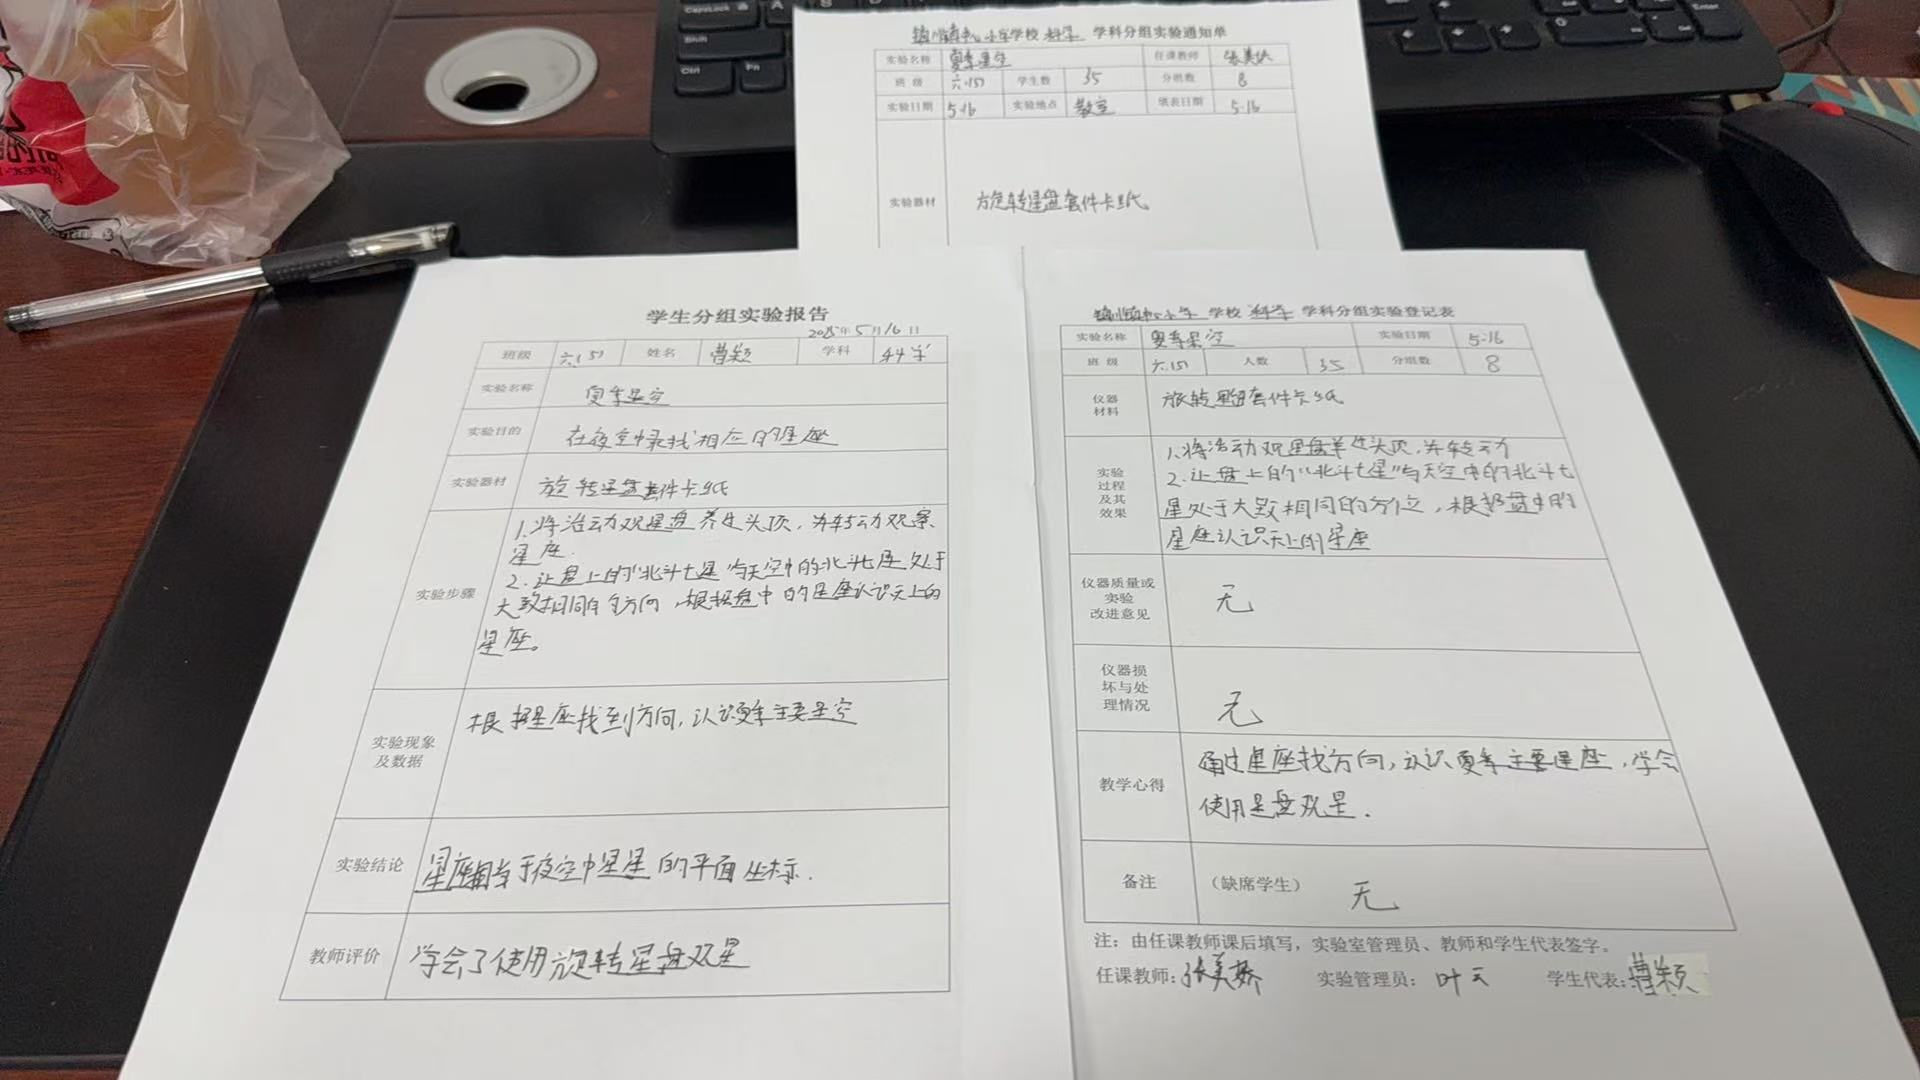 CapsLock
A
S
D
Shift
Ctrl
Fn
Enter
Shift
Ctrl
小学学校 科学 学科分组实验通知单
实验名称 夏季星空 任课教师 张美娇
班 级 六(5) 学生数 35 分组数 8
实验日期 5.16 实验地点 教室 填表日期 5.16
实验器材 旋转星盘套件卡纸
学生分组实验报告
2025年5月16日
班级 六(5) 姓名 曹颖 学科 科学
实验名称 夏季星空
实验目的 在夜空中寻找相应的星座
实验器材 旋转星盘套件卡纸
1.将活动观星盘 在头顶,并转动观察
星座.
2.让盘上的"北斗七星"与天空中的北斗七星处于
实验步骤 大致相同的方向,根据盘中的星座认识天上的
星座。
根据星座找到方向,认识夏季主要星空
实验现象
及数据
实验结论 星座相当于夜空中星星的平面坐标.
教师评价 学会了使用旋转星盘观星
小学 学校 科学 学科分组实验登记表
实验名称 夏季星空 实验日期 5.16
班 级 六(5) 人数 35 分组数 8
仪器
材料 旋转星盘套件卡纸
1.将活动观星盘举过头顶,并转动
实验
过程
及其
效果
2.让盘上的"北斗七星"与天空中的北斗七
星处于大致相同的方位,根据盘中的
星座认识天上的星座
仪器质量或
实验
改进意见
无
仪器损
坏与处
理情况
无
教学心得 通过星座找方向,认识夏季主要星座,学会
使用星盘观星.
备注 (缺席学生) 无
注:由任课教师课后填写,实验室管理员、教师和学生代表签字。
任课教师:张美娇 实验管理员: 叶云 学生代表:曹颖